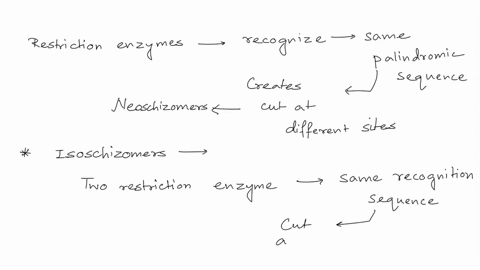 Restriction enzymes → recognize → same
palindromic
sequence
Creates
Neoschizomers ← cut at
different sites
* Isoschizomers →
Two restriction enzyme → same recognition
sequence
Cut ←
a